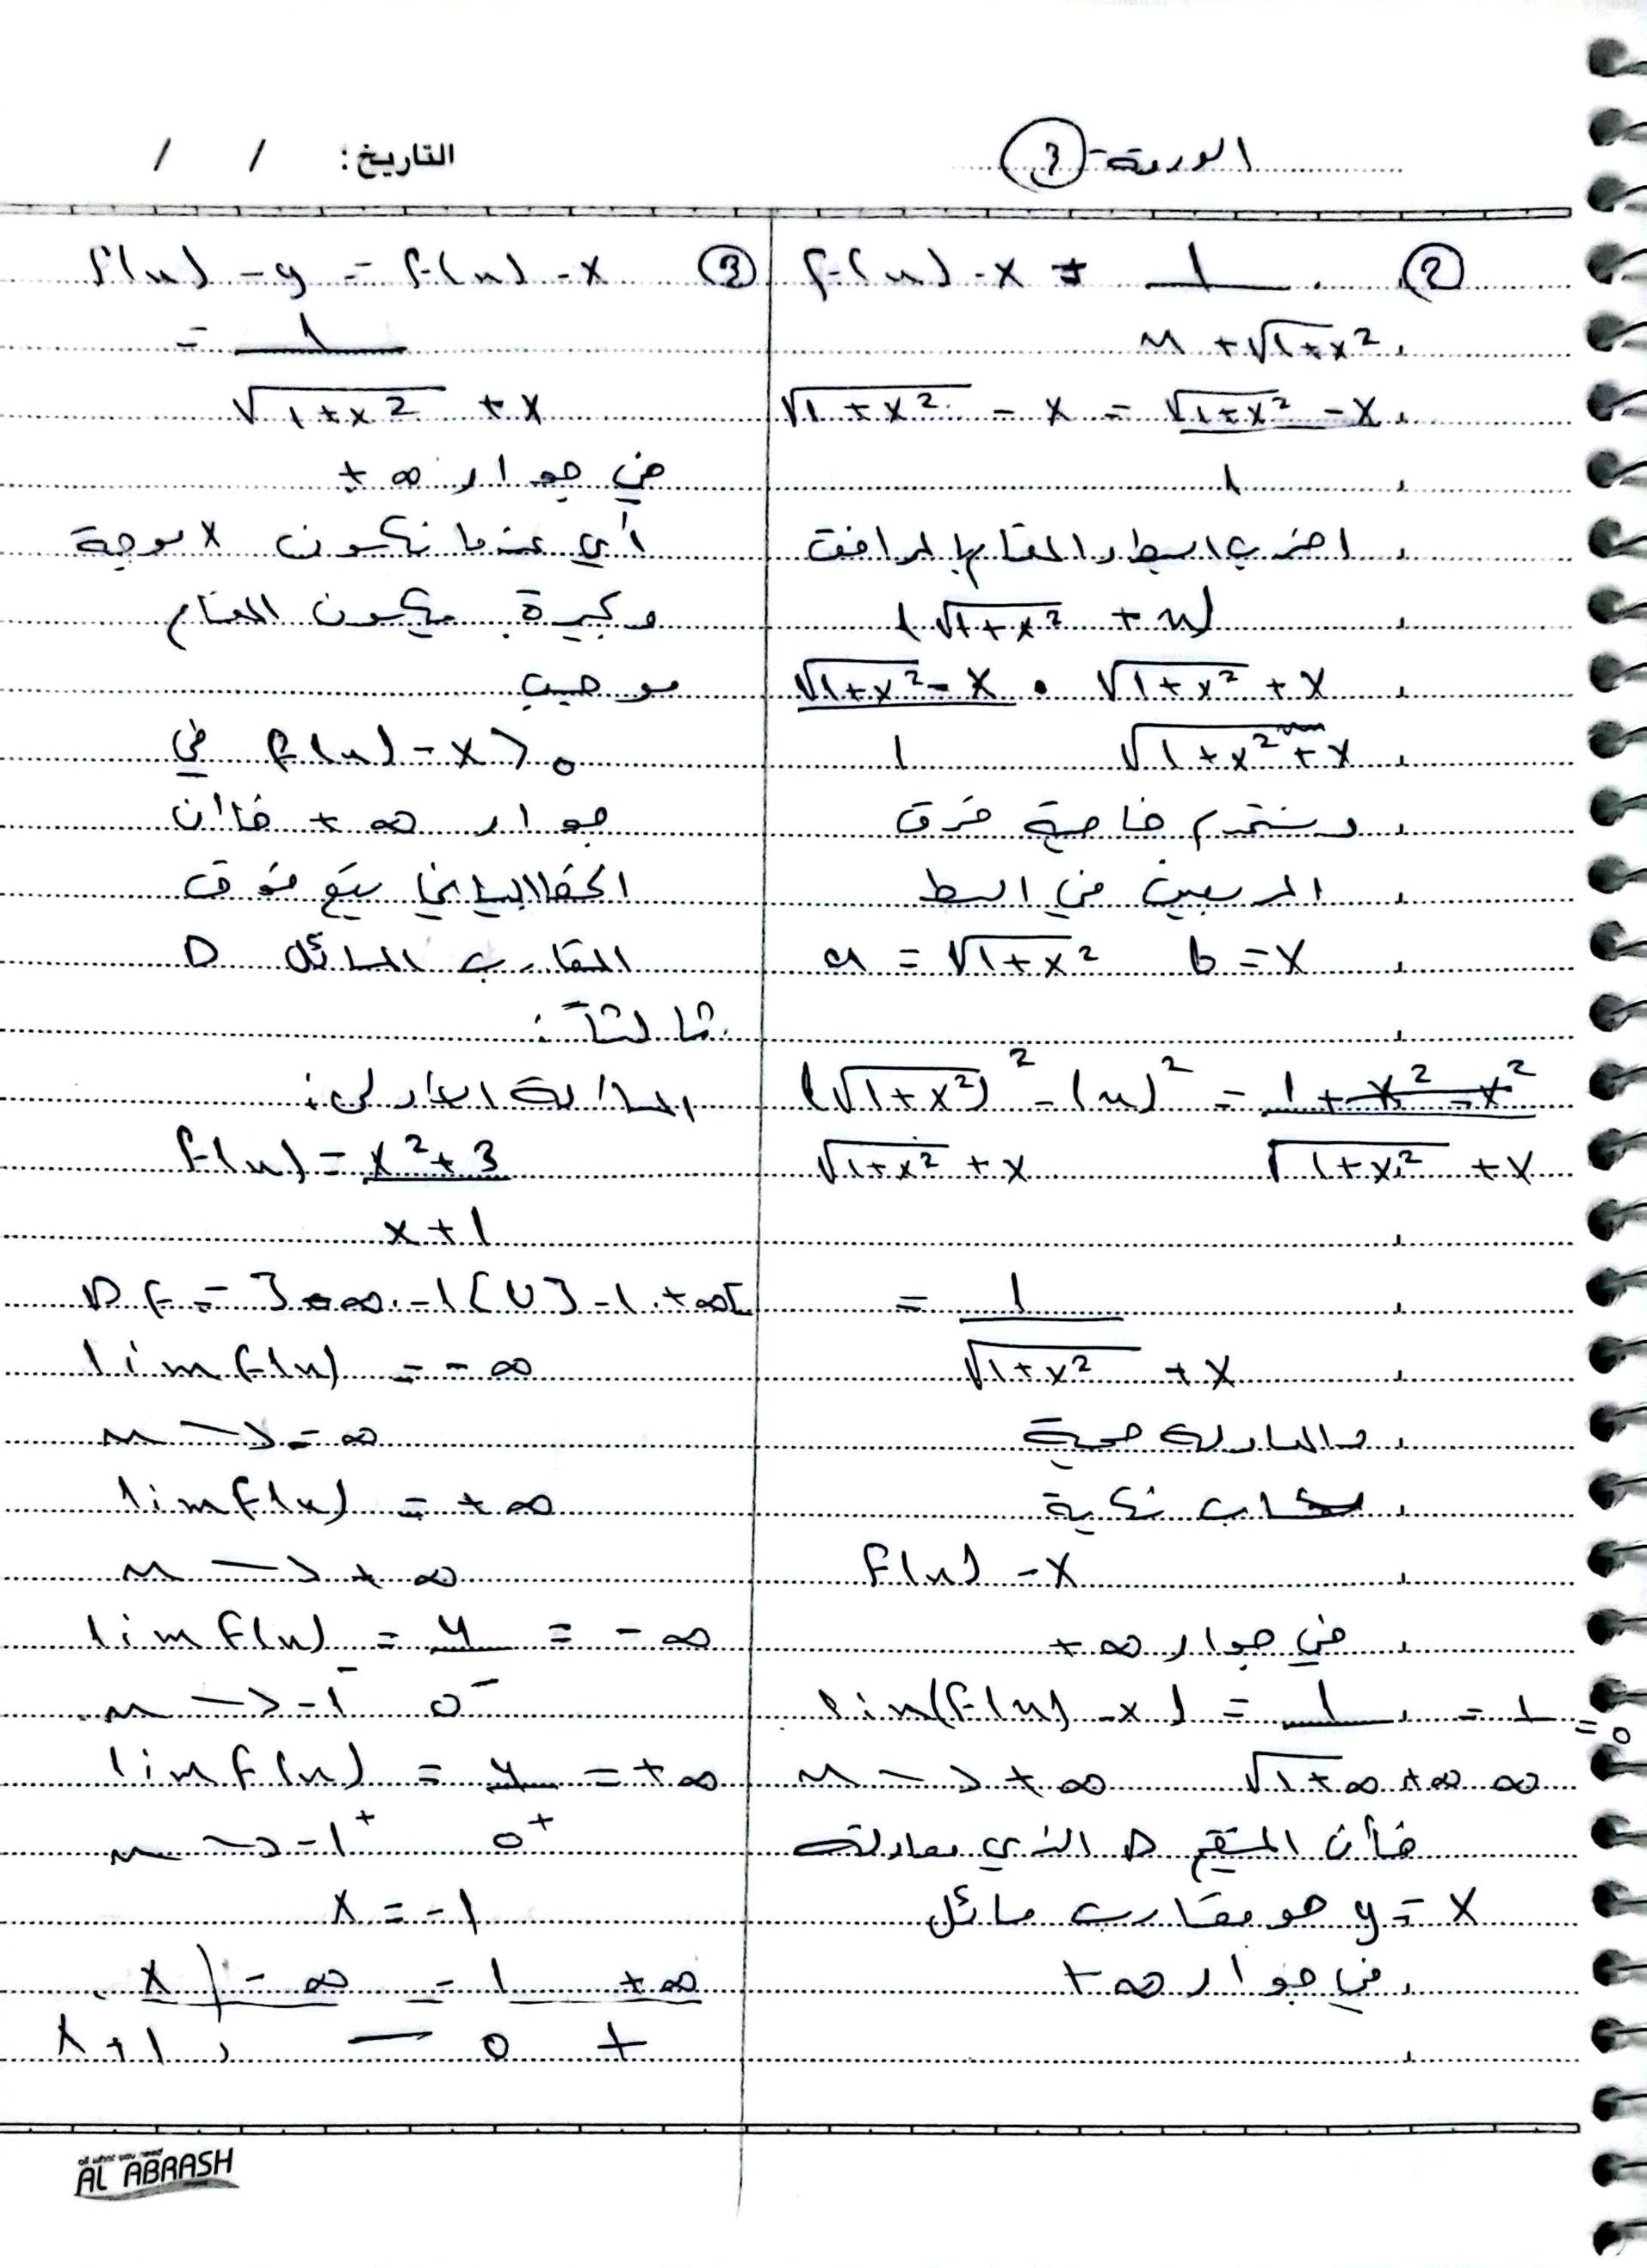 الورقة - ③
التاريخ: / /
② f(x) - x = 1
x + √1+x²
√1+x² - x = √1+x² - x
1
اضرب البسط والمقام بالمرافق
(√1+x² + x)
√1+x² - x • √1+x² + x
1 √1+x² + x
ونستخدم خاصية فرق
المربعين في البسط
a = √1+x² b = x
(√1+x²)² - (x)² = 1+x²-x²
√1+x² + x √1+x² + x
= 1
√1+x² + x
والمساواة صحيحة
حساب نهاية
f(x) - x
في جوار +∞
lim(f(x) - x) = 1 = 1 = 0
x → +∞ √1+∞ +∞ ∞
فأن المستقيم D الذي معادلته
y = x هو مقارب مائل
في جوار +∞
③ f(x) - y = f(x) - x
= 1
√1+x² + x
في جوار +∞
أي عندما تكون x موجبة
وكبيرة يكون المقام
موجب
f(x) - x > 0 في
جوار +∞ فاان
الخط البياني يقع فوق
المقارب المائل D
ثالثاً:
المسألة الأولى:
f(x) = x² + 3
x + 1
Df = ]-∞. -1[ U ]-1. +∞[
lim f(x) = -∞
x → -∞
lim f(x) = +∞
x → +∞
lim f(x) = 4 = -∞
x → -1⁻ 0⁻
lim f(x) = 4 = +∞
x → -1⁺ 0⁺
x = -1
x | -∞ -1 +∞
x + 1 | - 0 +
all what you need
AL ABRASH